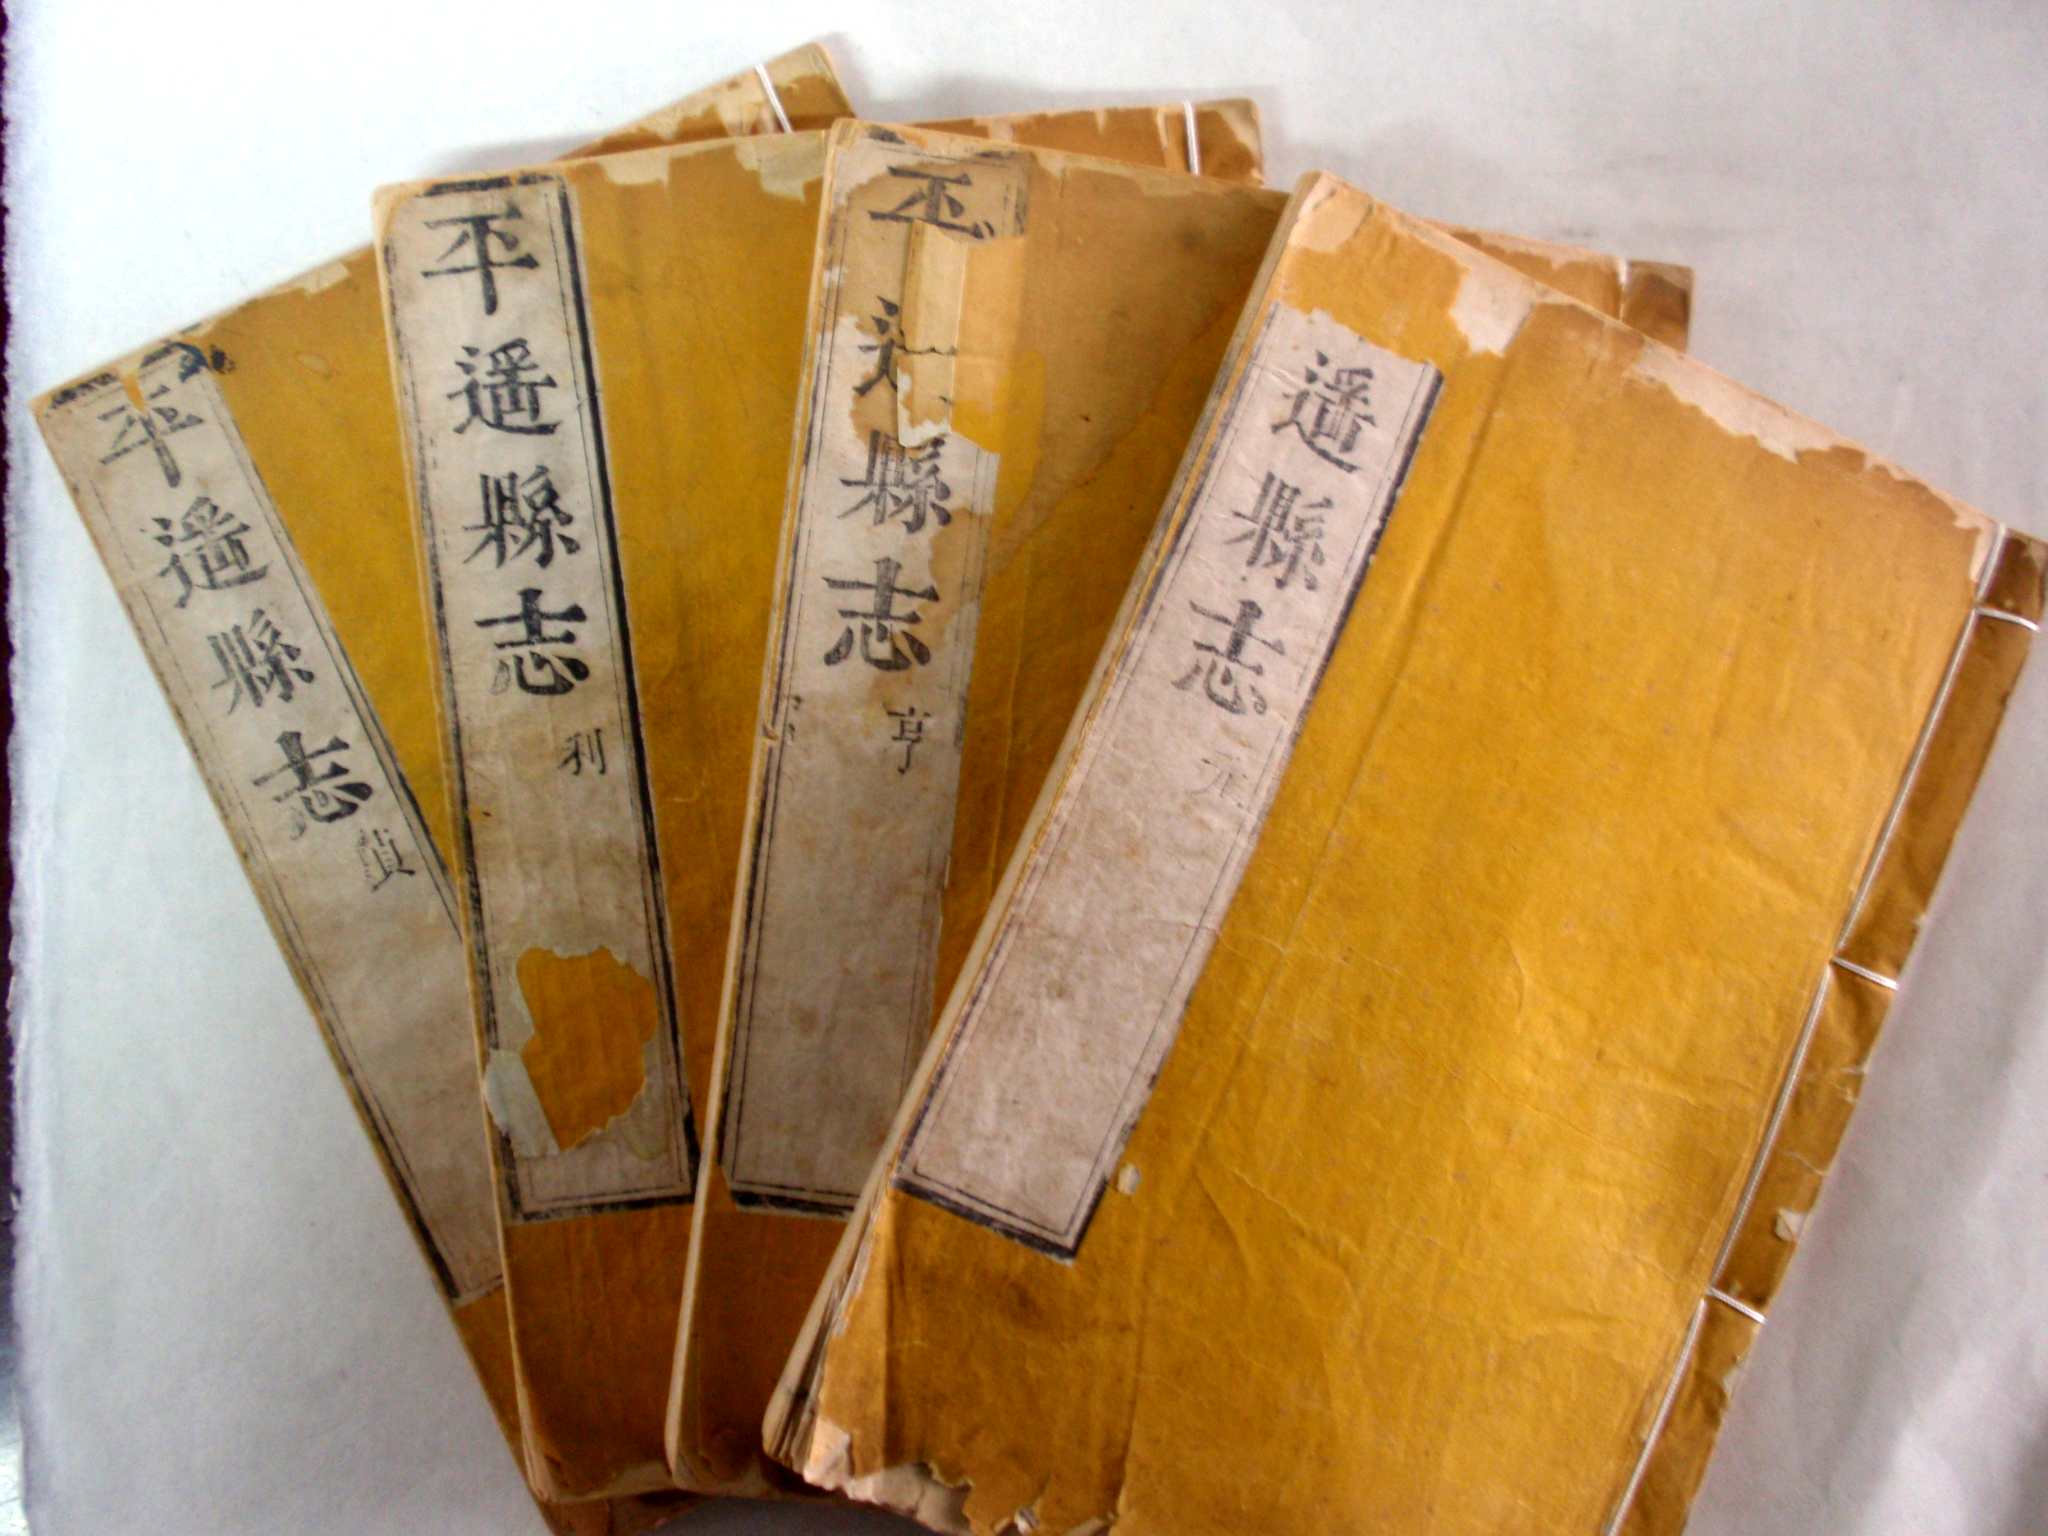 平遥縣志 貞
平遥縣志 利
平 縣志 亨
遥縣志 元